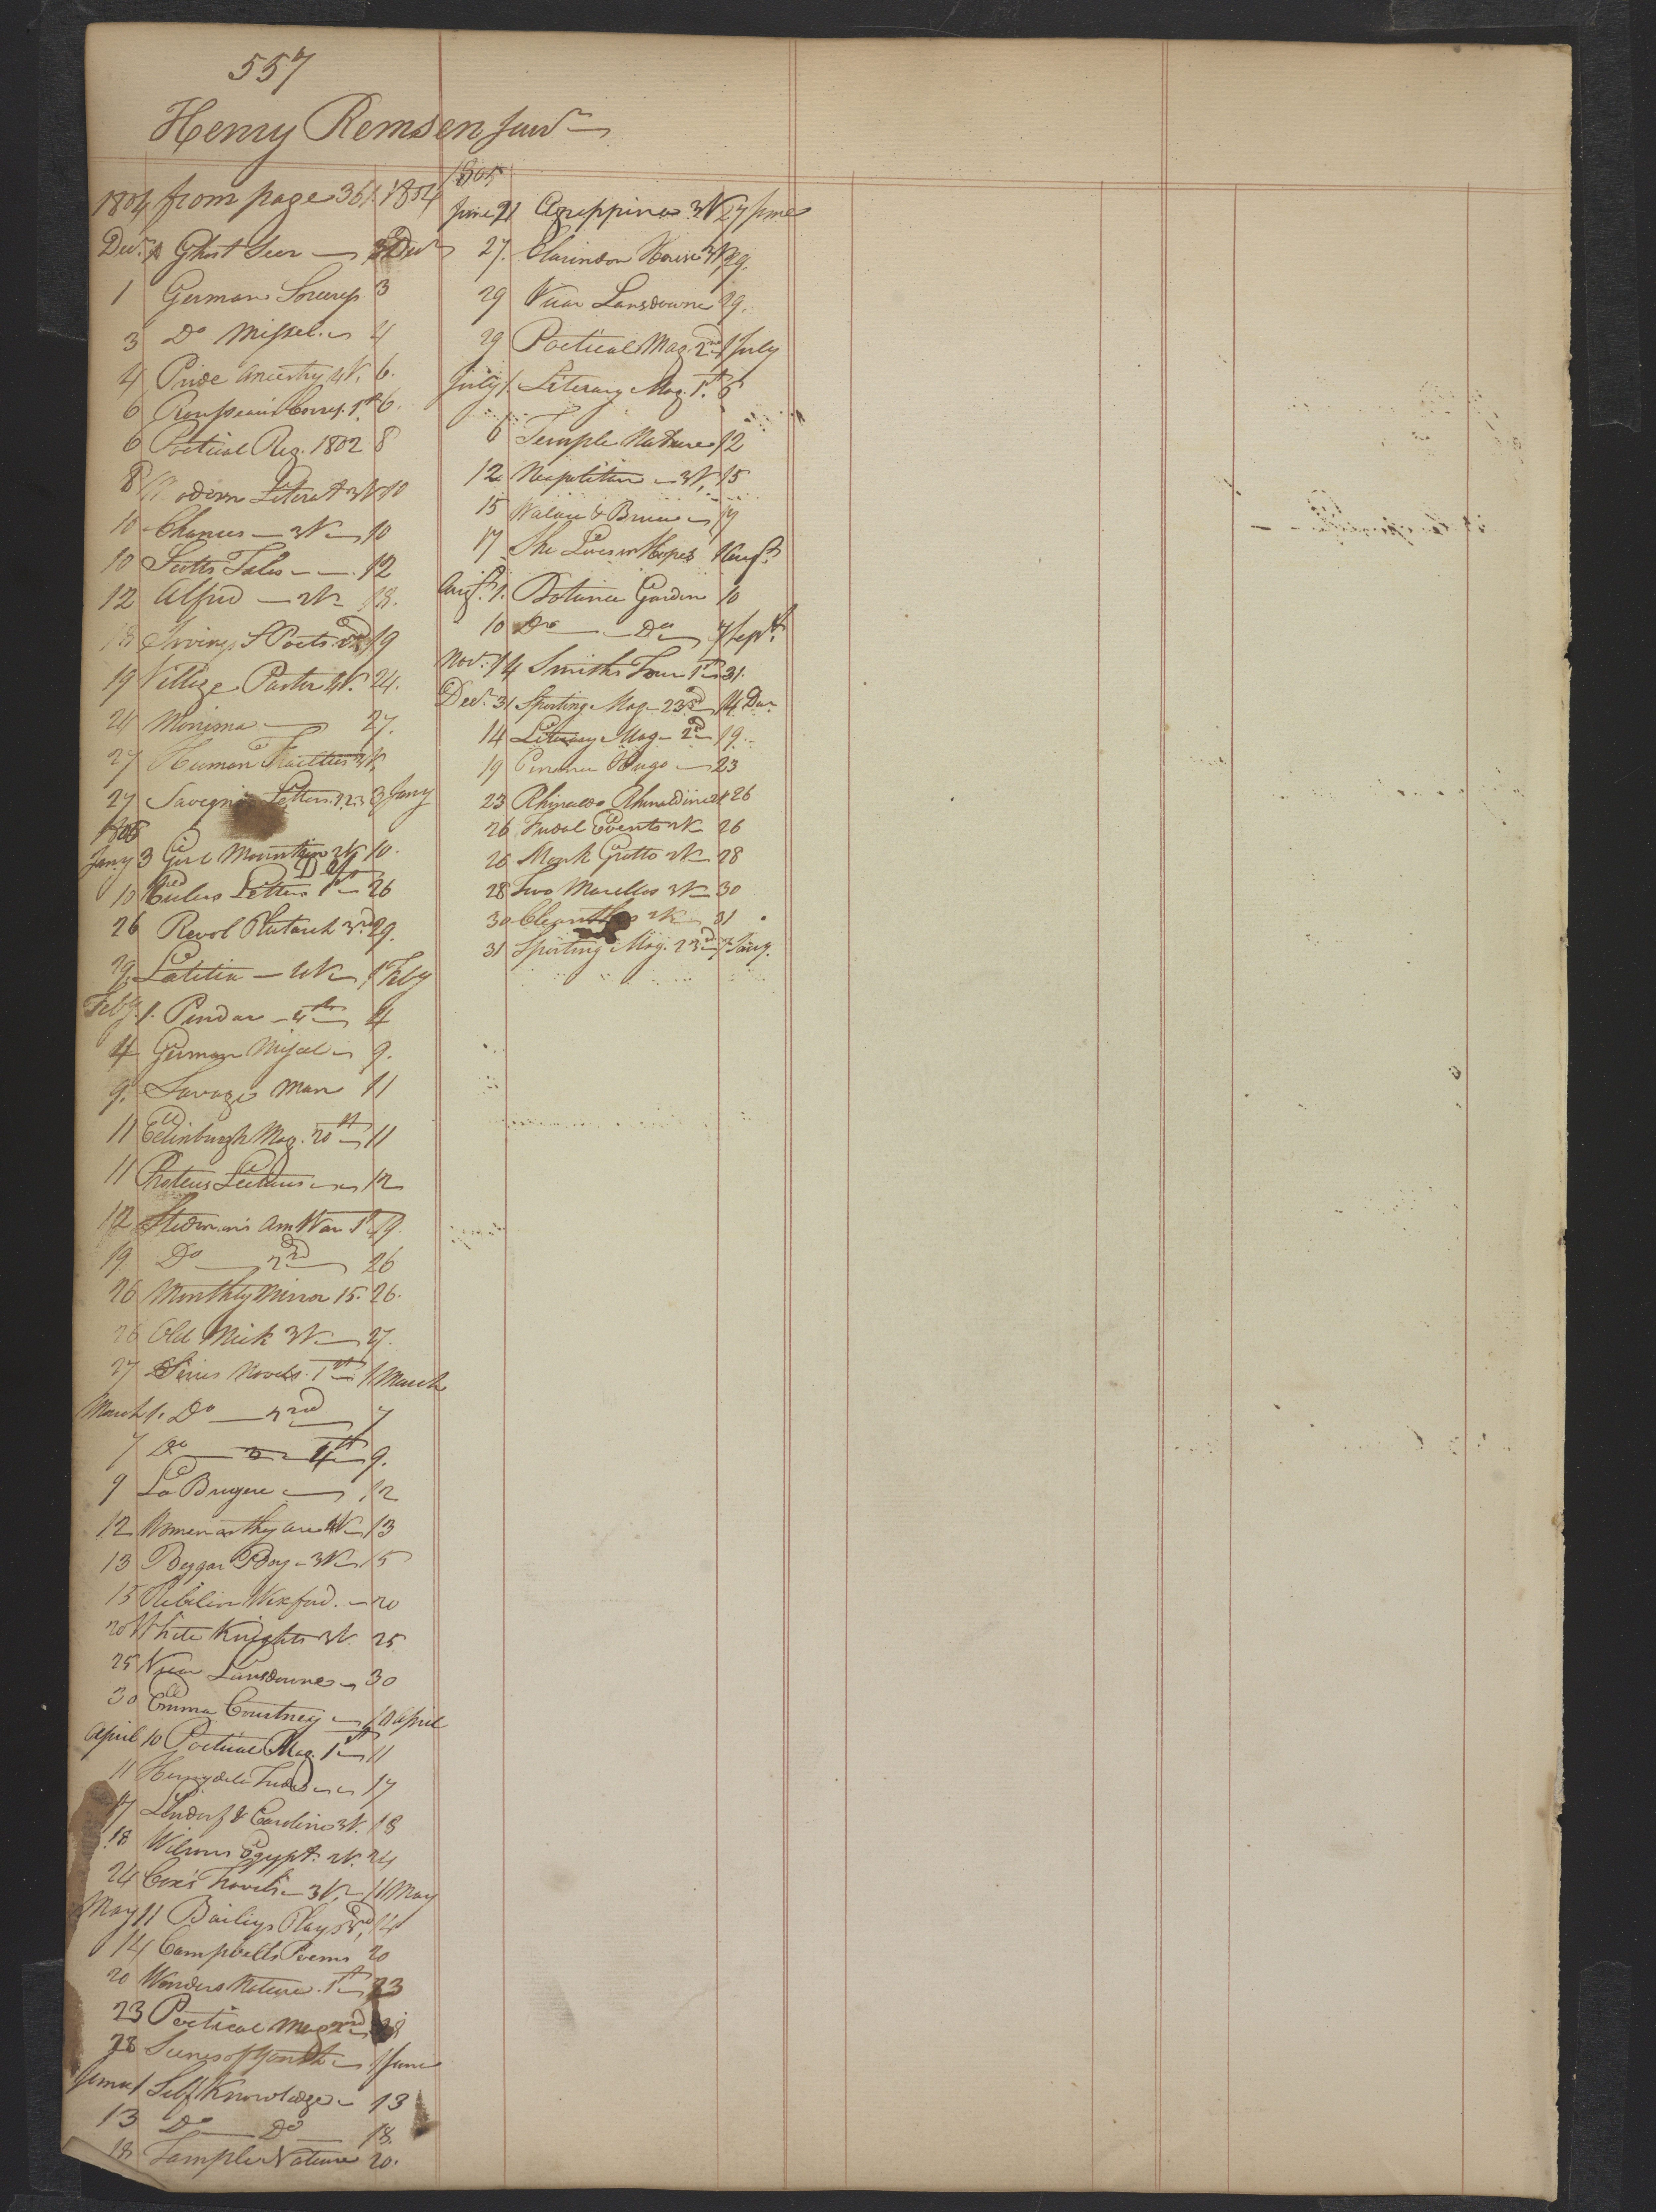 557
Henry Remsen Junr
1804 from page 361. 1804
Decr. 1 Ghost Seer Decr
1 German Sorceress 3
3 Do Miscel. 4
4 Pride Ancestry 4V. 6.
6 Rousseau's Corresp. 1st 6.
6 Poetical Reg. 1802 8
8 Modern Literat 3V 10
10 Chances 3V 10
10 Scotts Tales 12
12 Alfred 2V 18.
18 Irvings S Poets 19
19 Village Pastor 4V. 24.
24 Monima 27.
27 Human Frailties 3V.
27 Letters 1.2.3 3 Jany
1805
Jany 3 Girl Mountain 2V 10.
10 Eulers Letters 1st 26
26 Revol Plutarch 3rd 29.
29. Letitia 2V 1 Feby
Feby. 1. Pindar 4th 4
4 German Miscel 9.
9. Savage Man 11
11 Edinburgh Mag. 20th 11
11 Proteus Lectures 12
12 Stedman's Am War 1st 19.
19. Do 2nd 26
26 Monthly Mirror 15. 26.
26 Old Nick 3V 27.
27 Series Novels. 1st 1 March
March 1. Do 2nd 7
7 Do 4th 9.
9 La Bruyere 12
12 Women as they are 4V 13
13 Beggar Boy 3V 15
15 Wexford. 20
20 White Knights 3V. 25
25 Vicar Lansdowne 30
30 Emma Courtney 10 April
April 10 Poetical Mag. 1st 11
11 17
17 Lindorf & Caroline 3V. 18
18 Wilsons Egypt. 2V. 24
24 Coxe's Travels 3V. 11 May
May 11 Bailiys Plays 14
14 Campbells Poems 20
20 Wonders Nature. 1st 23
23 Poetical Mag 2nd 28
28 Scenes of Youth 1 June
June 1 Self Knowledge 13
13 Do Do 18.
18 Temple Nature 20.
1805
June 21 Agrippina 3V 27 June
27. Clarindon House 3V 29.
29 Vicar Lansdowne 29.
29 Poetical Mag. 2nd 1 July
July 1. Literary Mag. 1st. 6
6 Temple Nature 12
12 Neapolitan 3V. 15
15 Walace & Bruce 17
17 She Lives in Hopes 1 Augt.
Augt. 1. Botanic Garden 10
10 Do Do 7 Sept.
Nov. 14 Smiths Tour 1st 31.
Decr. 31 Sporting Mag 23rd 14 Dec
14 Literary Mag 2nd 19.
19 Hugo 23
23 Rhinaldo Rhinaldini 2V 26
26 Fudal Events 2V 26
26 Monk Grotto 2V 28
28 Two Marellos 2V 30
30 Cleanthes 2V 31
31 Sporting Mag. 23rd 7 Jany.